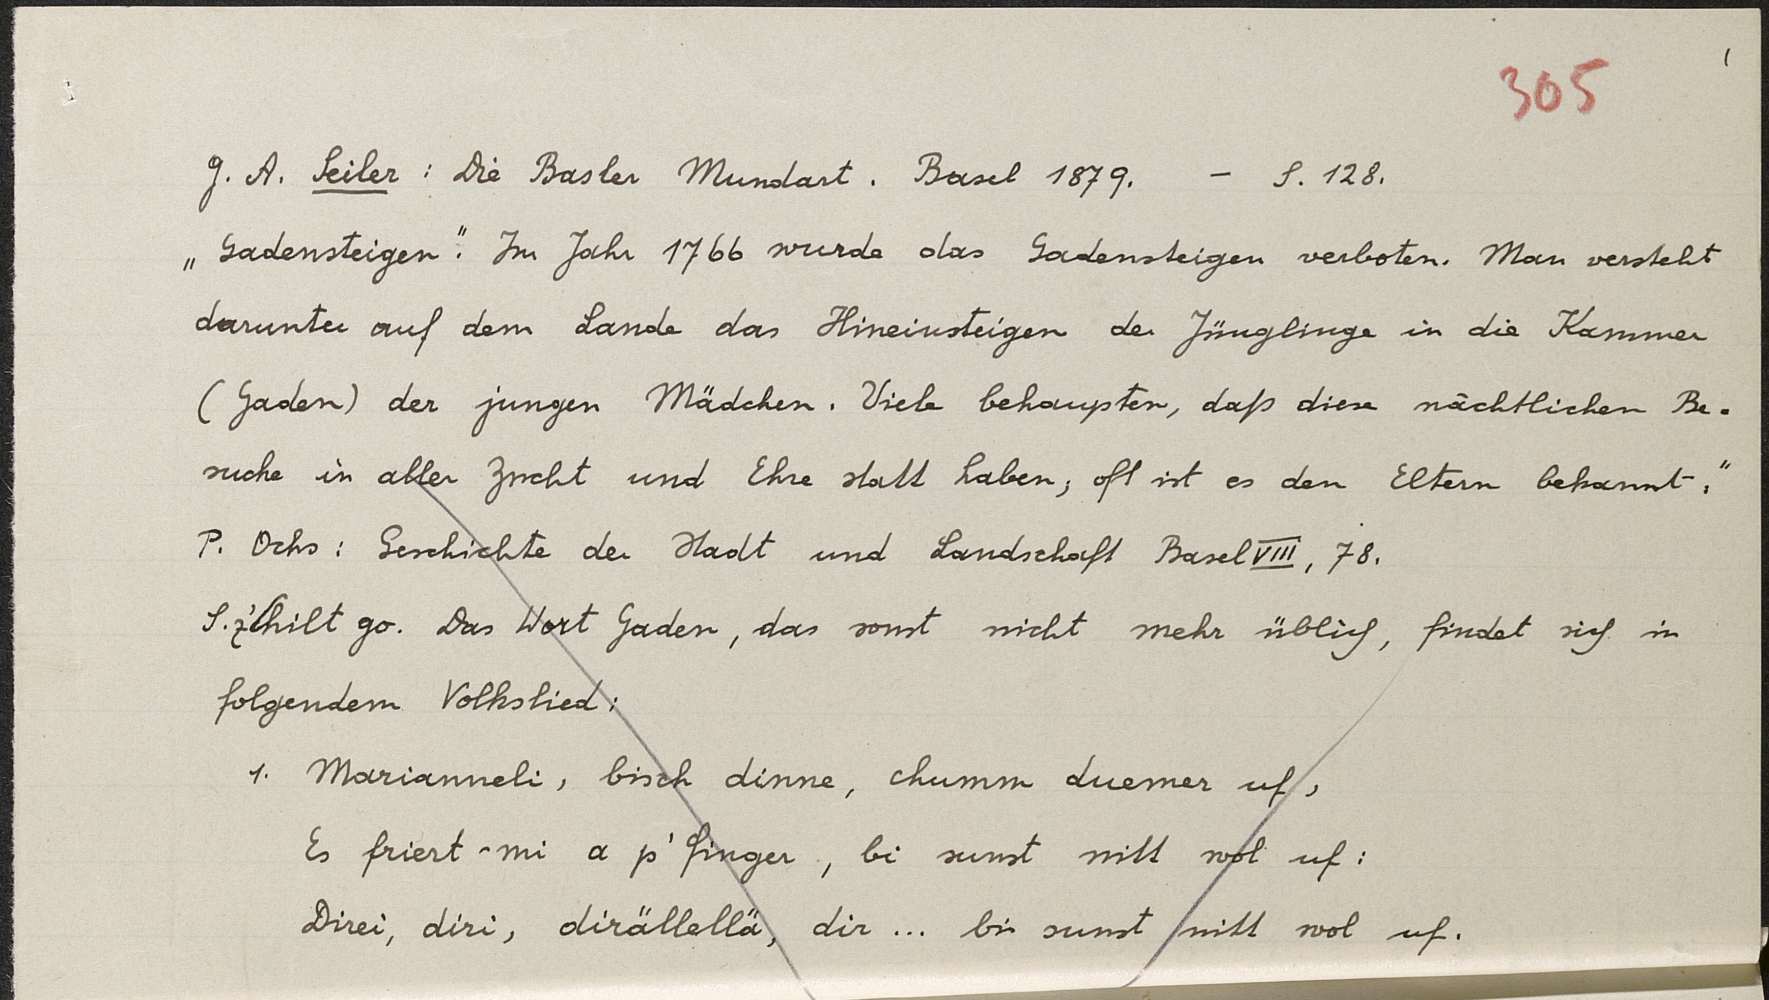 305
G. A. Seiler : Die Basler Mundart. Basel 1879. – S. 128.
„Gadensteigen". Im Jahr 1766 wurde das Gadensteigen verboten. Man versteht
darunter auf dem Lande das Hineinsteigen der Jünglinge in die Kammer
(Gaden) der jungen Mädchen. Viele behaupten, daß diese nächtlichen Be-
suche in aller Zucht und Ehre statt haben; oft ist es den Eltern bekannt."
P. Ochs : Geschichte der Stadt und Landschaft Basel VIII, 78.
S. z'Chilt go. Das Wort Gaden, das sonst nicht mehr üblich, findet sich in
folgendem Volkslied:
1. Marianneli, bisch dinne, chumm duemer uf,
Es friert-mi a p'finger, bi sunst nitt wol uf:
Direi, diri, dirällellä, dir ... bi sunst nitt wol uf.